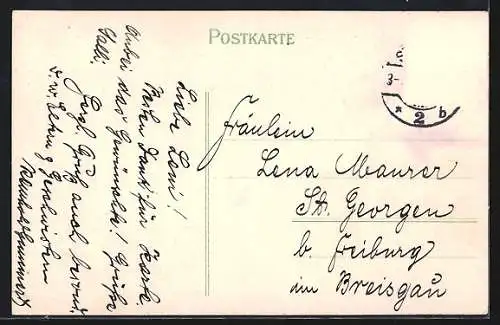 POSTKARTE
Liebe Leni!
Besten Dank für Karte.
Anbei das Gewünschte! Grüße
Herzl. Gruß auch besond.
d. w. Eltern & Geschwistern
Fräulein
Lena Maurer
St. Georgen
b. Freiburg
im Breisgau
* 2 b